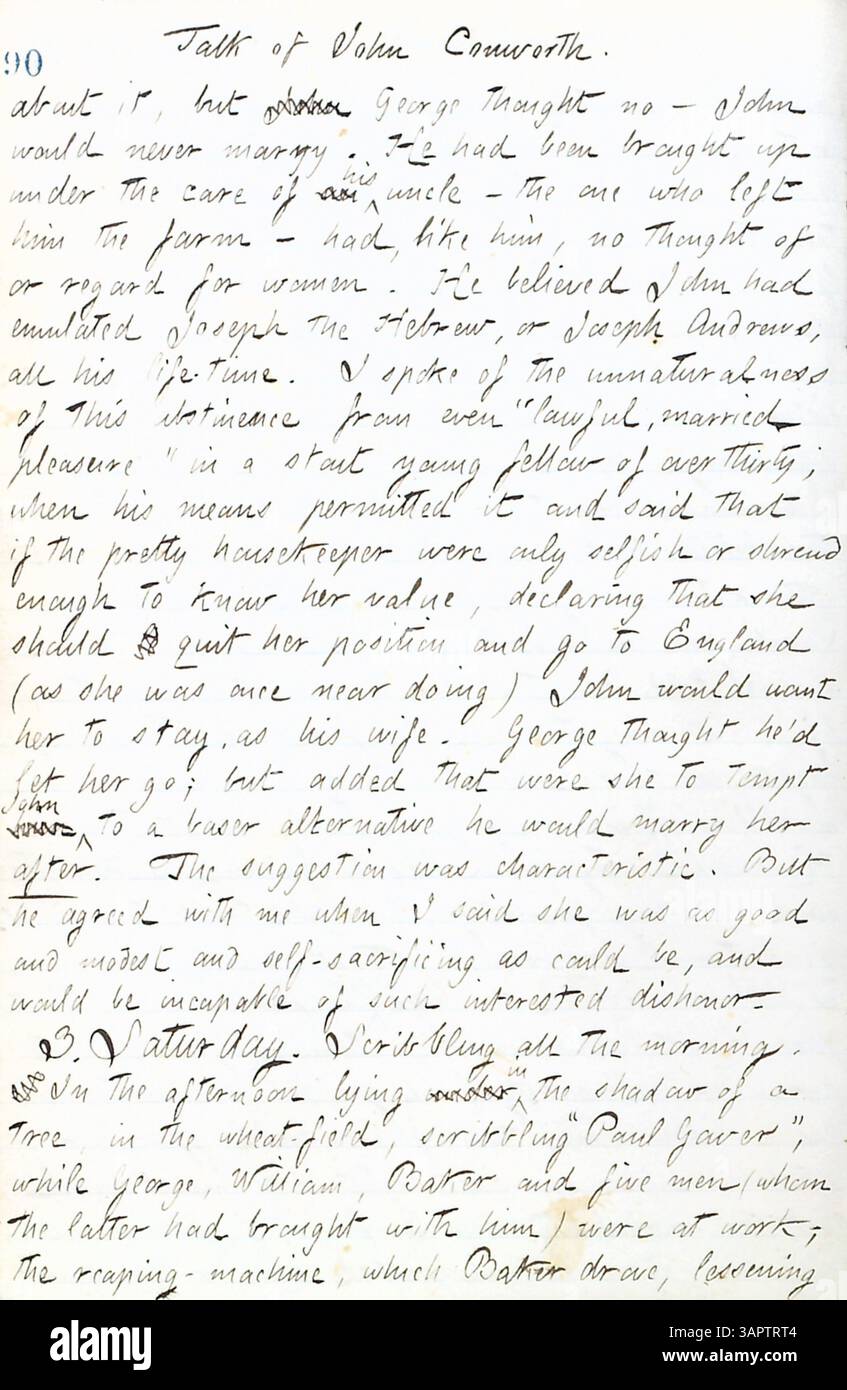 Talk of John Conworth.
90
about it, but John George thought no — John
would never marry. He had been brought up
under the care of an his uncle — the one who left
him the farm — had, like him, no thought of
or regard for women. He believed John had
emulated Joseph the Hebrew, or Joseph Andrews,
all his life-time. I spoke of the unnaturalness
of this abstinence from even "lawful, married
pleasure" in a stout young fellow of over thirty;
when his means permitted it and said that
if the pretty housekeeper were only selfish or shrewd
enough to know her value, declaring that she
should quit her position and go to England
(as she was once near doing) John would want
her to stay, as his wife. George thought he'd
let her go; but added that were she to tempt
John to a baser alternative he would marry her
after. The suggestion was characteristic. But
he agreed with me when I said she was as good
and modest and self-sacrificing as could be, and
would be incapable of such interested dishonor.
3. Saturday. Scribbling all the morning.
In the afternoon lying under in the shadow of a
tree, in the wheat-field, scribbling "Paul Gower",
while George, William, Baker and five men (whom
the latter had brought with him) were at work;
the reaping-machine, which Baker drove, lessening
alamy
Image ID: 3APTRT4
www.alamy.com